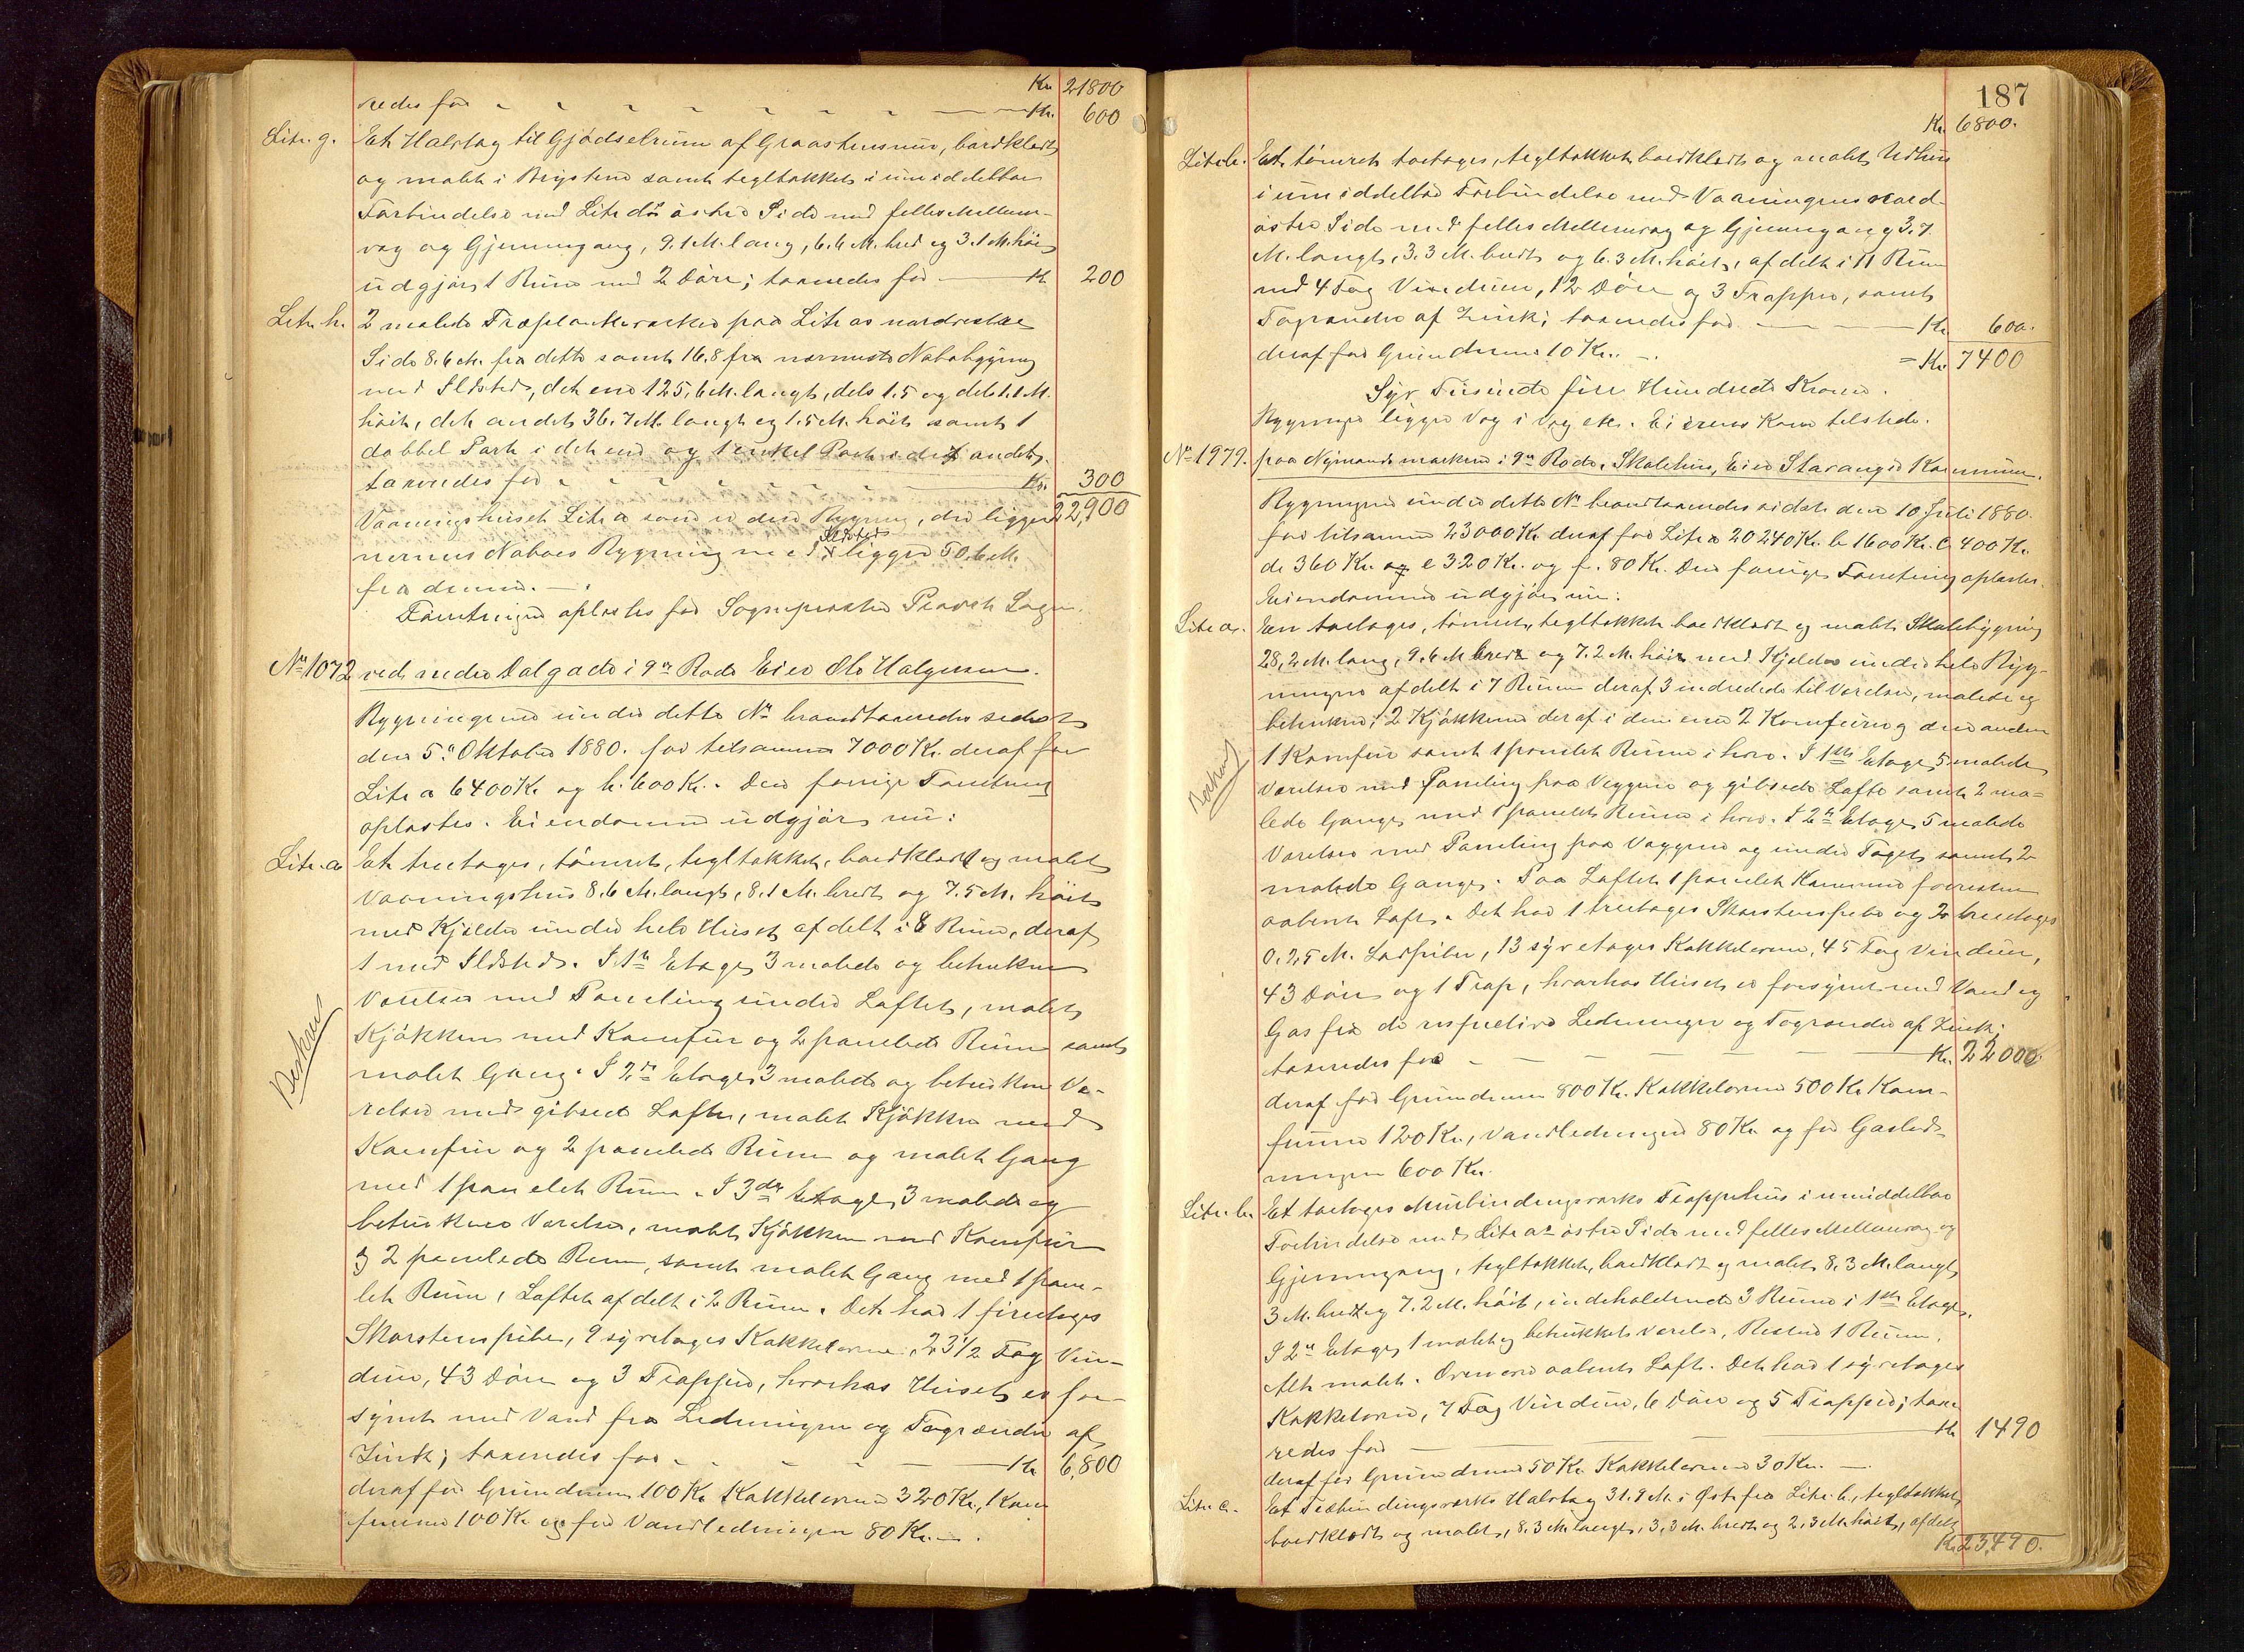 Kr. 21800
redes for " " " " " " — Kr. 600
Litr. g. Et Halvtag til Gjødselrum af Graastensmur, bordklædt
og malet i Bryststene samt tegltækket i umiddelbar
Forbindelse med Litr. ds østre Side med felles Mellem-
væg og Gjennemgang, 9.1 M. lang, 6.6 M. bred og 3.1 M. høi
udgjør 1 Rum med 2 Døre; taxeredes for — Kr. 200
Litr. h. 2 malede Træplankeværker paa Litr. as nordvestre
Side 8.6 M. fra dette samt 16.8 fra nærmeste Nabobygning
med Ildsted, det ene 125,6 M. langt, dels 1.5 og dels 1.1 M.
høit, det andet 36.7 M. langt og 1.5 M. høit samt 1
dobbel Port i det ene og 1 enkel Port i det andet,
taxeredes for " " " " " " — Kr. 300
Vaaningshuset Litr. a som er den Bygning, der ligger 22,900
nærmest Naboens Bygning med Ildsted ligger 50.6 M.
fra denne. —
Forretningen oplæstes for Sogneprest Lage.
No 1072 ved nedre Dalgade i 9de Rode Eier Ole Halgesen.
Bygningerne under dette No brandtaxeredes sidst
den 5te Oktober 1880. for tilsammen 7000 Kr. deraf for
Litr a 6400 Kr. og b. 600 Kr. Den forrige Forretning
oplæstes. Eiendommen udgjør nu:
Litr. a Et treetages, tømret, tegltækket, bordklædt og malet
Vaaningshus 8.6 M. langt, 8.1 M. bredt og 7.5 M. høit
med Kjælder under hele Huset afdelt i 8 Rum, deraf
1 med Ildsted. I 1ste Etage 3 malede og betrukne
Værelser med Paneling under Loftet, malet
Kjøkken med Komfur og 2 panelede Rum samt
malet Gang. I 2den Etage 3 malede og betrukne Væ-
relser med gibsede Lofte, malet Kjøkken med
Komfur og 2 panelede Rum og malet Gang
med 1 panelet Rum. I 3die Etage 3 malede og
betrukne Værelser, malet Kjøkken med Komfur
og 2 panelede Rum, samt malet Gang med 1 pane-
let Rum, Loftet afdelt i 2 Rum. Det har 1 firetages
Skorstenspibe, 9 syvetages Kakkelovne, 23 1/2 Fag Vin-
duer, 43 Døre og 3 Trapper, hvorhos Huset er for-
synet med Vand fra Ledningen og Tagrender af
Zink; taxeredes for " " " — Kr. 6,800
deraf for Grundmuren 100 Kr. Kakkelovnene 320 Kr., Kom-
furene 100 Kr. og for Vandledningen 80 Kr. —.
187
Kr. 6800.
Litr. b. Et tømret toetages, tegltækket bordklædt og malet Udhus
i umiddelbar Forbindelse med Vaaningens nord-
østre Side med felles Mellemvæg og Gjennemgang 3.7
M. langt, 3.3 M. bredt og 6.3 M. høit, afdelt i 11 Rum
med 4 Fag Vinduer, 12 Døre og 3 Trapper, samt
Tagrender af Zink; taxeredes for — — Kr. 600.
deraf for Grundmuren 10 Kr. —. = Kr. 7400
Syv Tusinde fire Hundrede Kroner.
Bygningen ligger Væg i Væg etc. Eieren kom tilstede.
No 1979. paa Nymandsmarken i 9de Rode, Skolehus, Eier Stavanger Kommune.
Bygningerne under dette No brandtaxeredes sidst den 10 Juli 1880.
for tilsammen 23000 Kr. deraf for Litr a 20240 Kr. b 1600 Kr. c 400 Kr.
d. 360 Kr. og e 320 Kr. og f. 80 Kr. Den forrige Forretning oplæstes.
Eiendommen udgjør nu:
Litr. a. En toetages, tømret, tegltækket bordklædt og malet Skolebygning
28,2 M. lang, 9.6 M bred og 7.2 M. høi med Kjelder under hele Byg-
ningen afdelt i 7 Rum deraf 3 indredede til Værelser, malede og
betrukne; 2 Kjøkkener deraf i den ene 2 Komfurer og den anden
1 Komfur samt 1 panelet Rum i hver. I 1ste Etage 5 malede
Værelser med Paneling paa Væggene og gibsede Lofte samt 2 ma-
lede Gange med 1 panelet Rum i hver. I 2den Etage 5 malede
Værelser med Paneling paa Væggene og under Taget samt 2
malede Gange. Paa Loftet 1 panelet Kammer forresten
aabent Loft. Det har 1 treetages Skorstenspibe og 2 treetages
0.25 M. Lodpiber, 13 syvetages Kakkelovne, 45 Fag Vinduer,
43 Døre og 1 Trap, hvorhos Huset er forsynet med Vand og
Gas fra de respective Ledninger og Tagrender af Zink;
taxeredes for — — — — Kr. 22000
deraf for Grundmuren 800 Kr. Kakkelovnene 500 Kr Kom-
furene 120 Kr., Vandledningen 80 Kr. og for Gasled-
ningen 600 Kr.
Litr. b. Et toetages Murbindingsværks Trappehus i umiddelbar
Forbindelse med Litr as østre Side med felles Mellemvæg og
Gjennemgang, tegltækket, bordklædt og malet 8,3 M. langt,
3 M. bredt og 7.2 M. høit, indeholdende 3 Rum i 1ste Etage,
I 2den Etage 1 malet og betrukket Værelse, Resten 1 Rum.
Alt malet. Ovenover aabent Loft. Det har 1 syvetages
Kakkelovn, 7 Fag Vinduer, 6 Døre og 5 Trapper; taxe-
redes for — — — Kr. 1490
deraf for Grundmuren 50 Kr. Kakkelovnen 30 Kr. —.
Litr. c. Et Træbindingsværks Halvtag 31.9 M. i Øst fra Litr. b., tegltækket,
bordklædt og malet, 8,3 M. langt, 3,3 M. bredt og 2,3 M. høit, afdelt
Kr. 23,490.